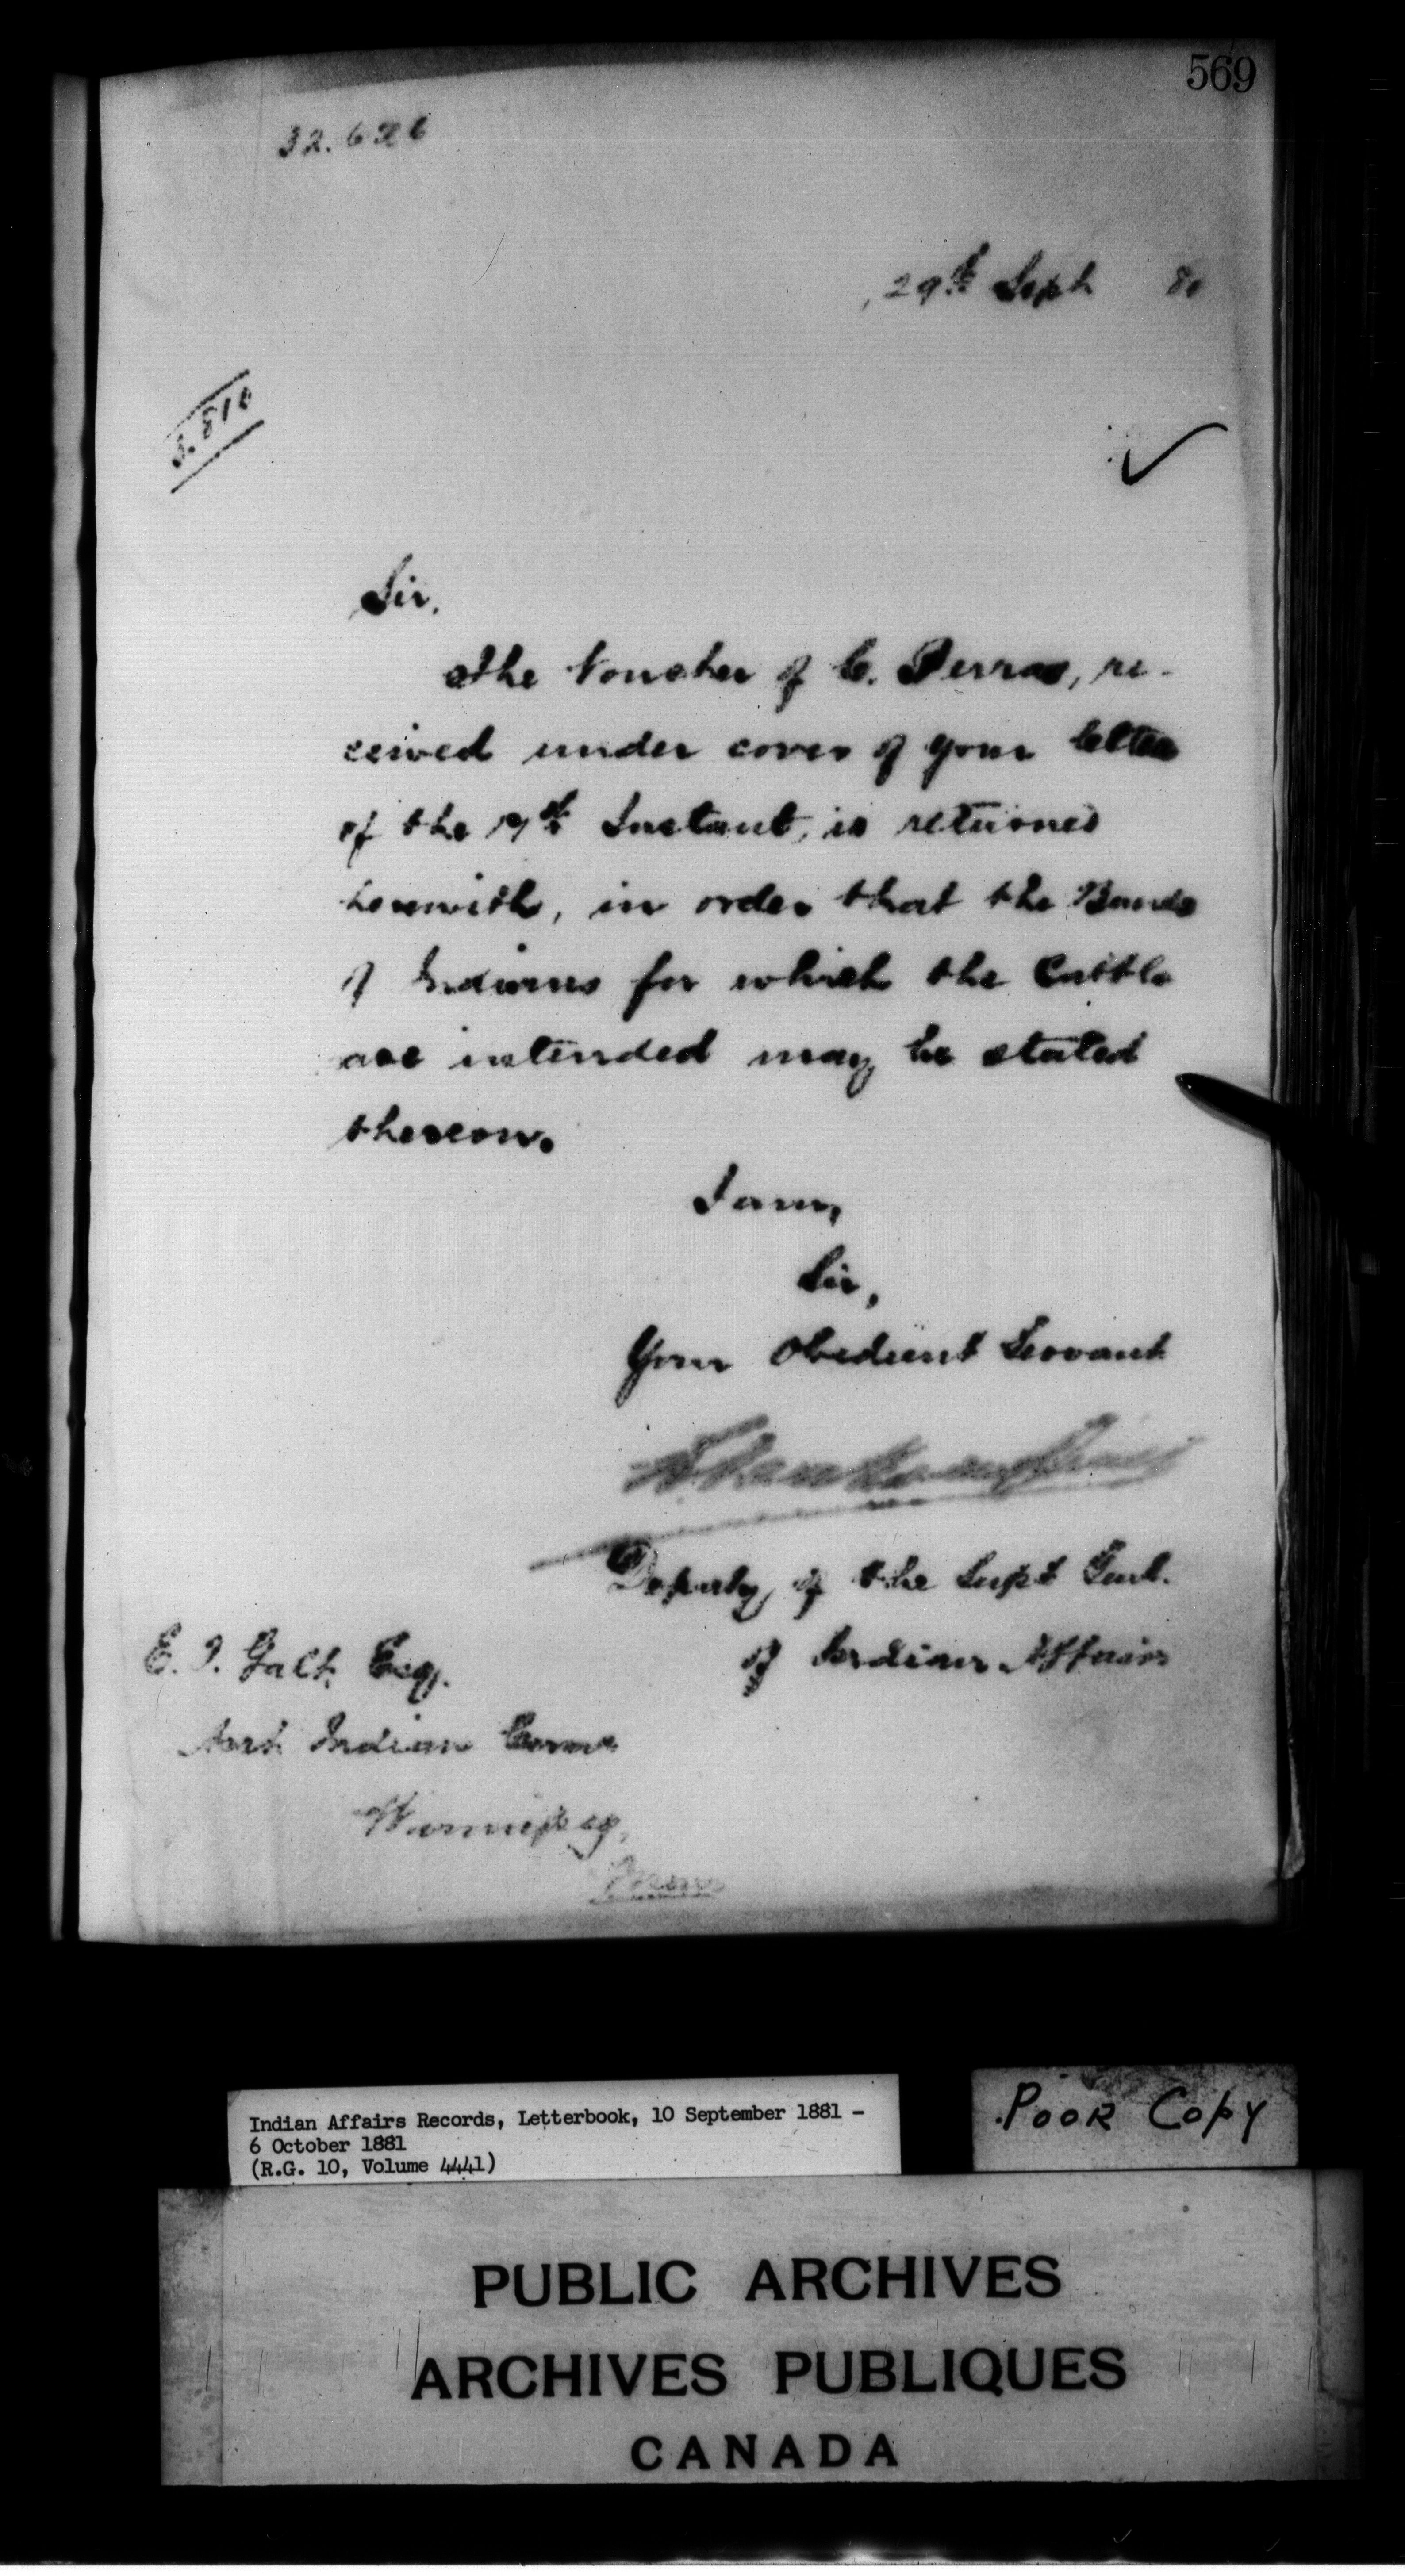 569
32.626
29th Sept 81
Sir,
The Voucher of C. re-
ceived under cover of your letter
of the 19th Instant, is returned
herewith, in order that the Bands
of Indians for which the Cattle
are intended may be stated
thereon.
I am,
Sir,
Your Obedient Servant
Deputy of the Supt Genl.
of Indian Affairs
E. T. Galt Esq.
Asst Indian Commr
Winnipeg,
Indian Affairs Records, Letterbook, 10 September 1881 -
6 October 1881
(R.G. 10, Volume 4441)
POOR COPY
PUBLIC ARCHIVES
ARCHIVES PUBLIQUES
CANADA